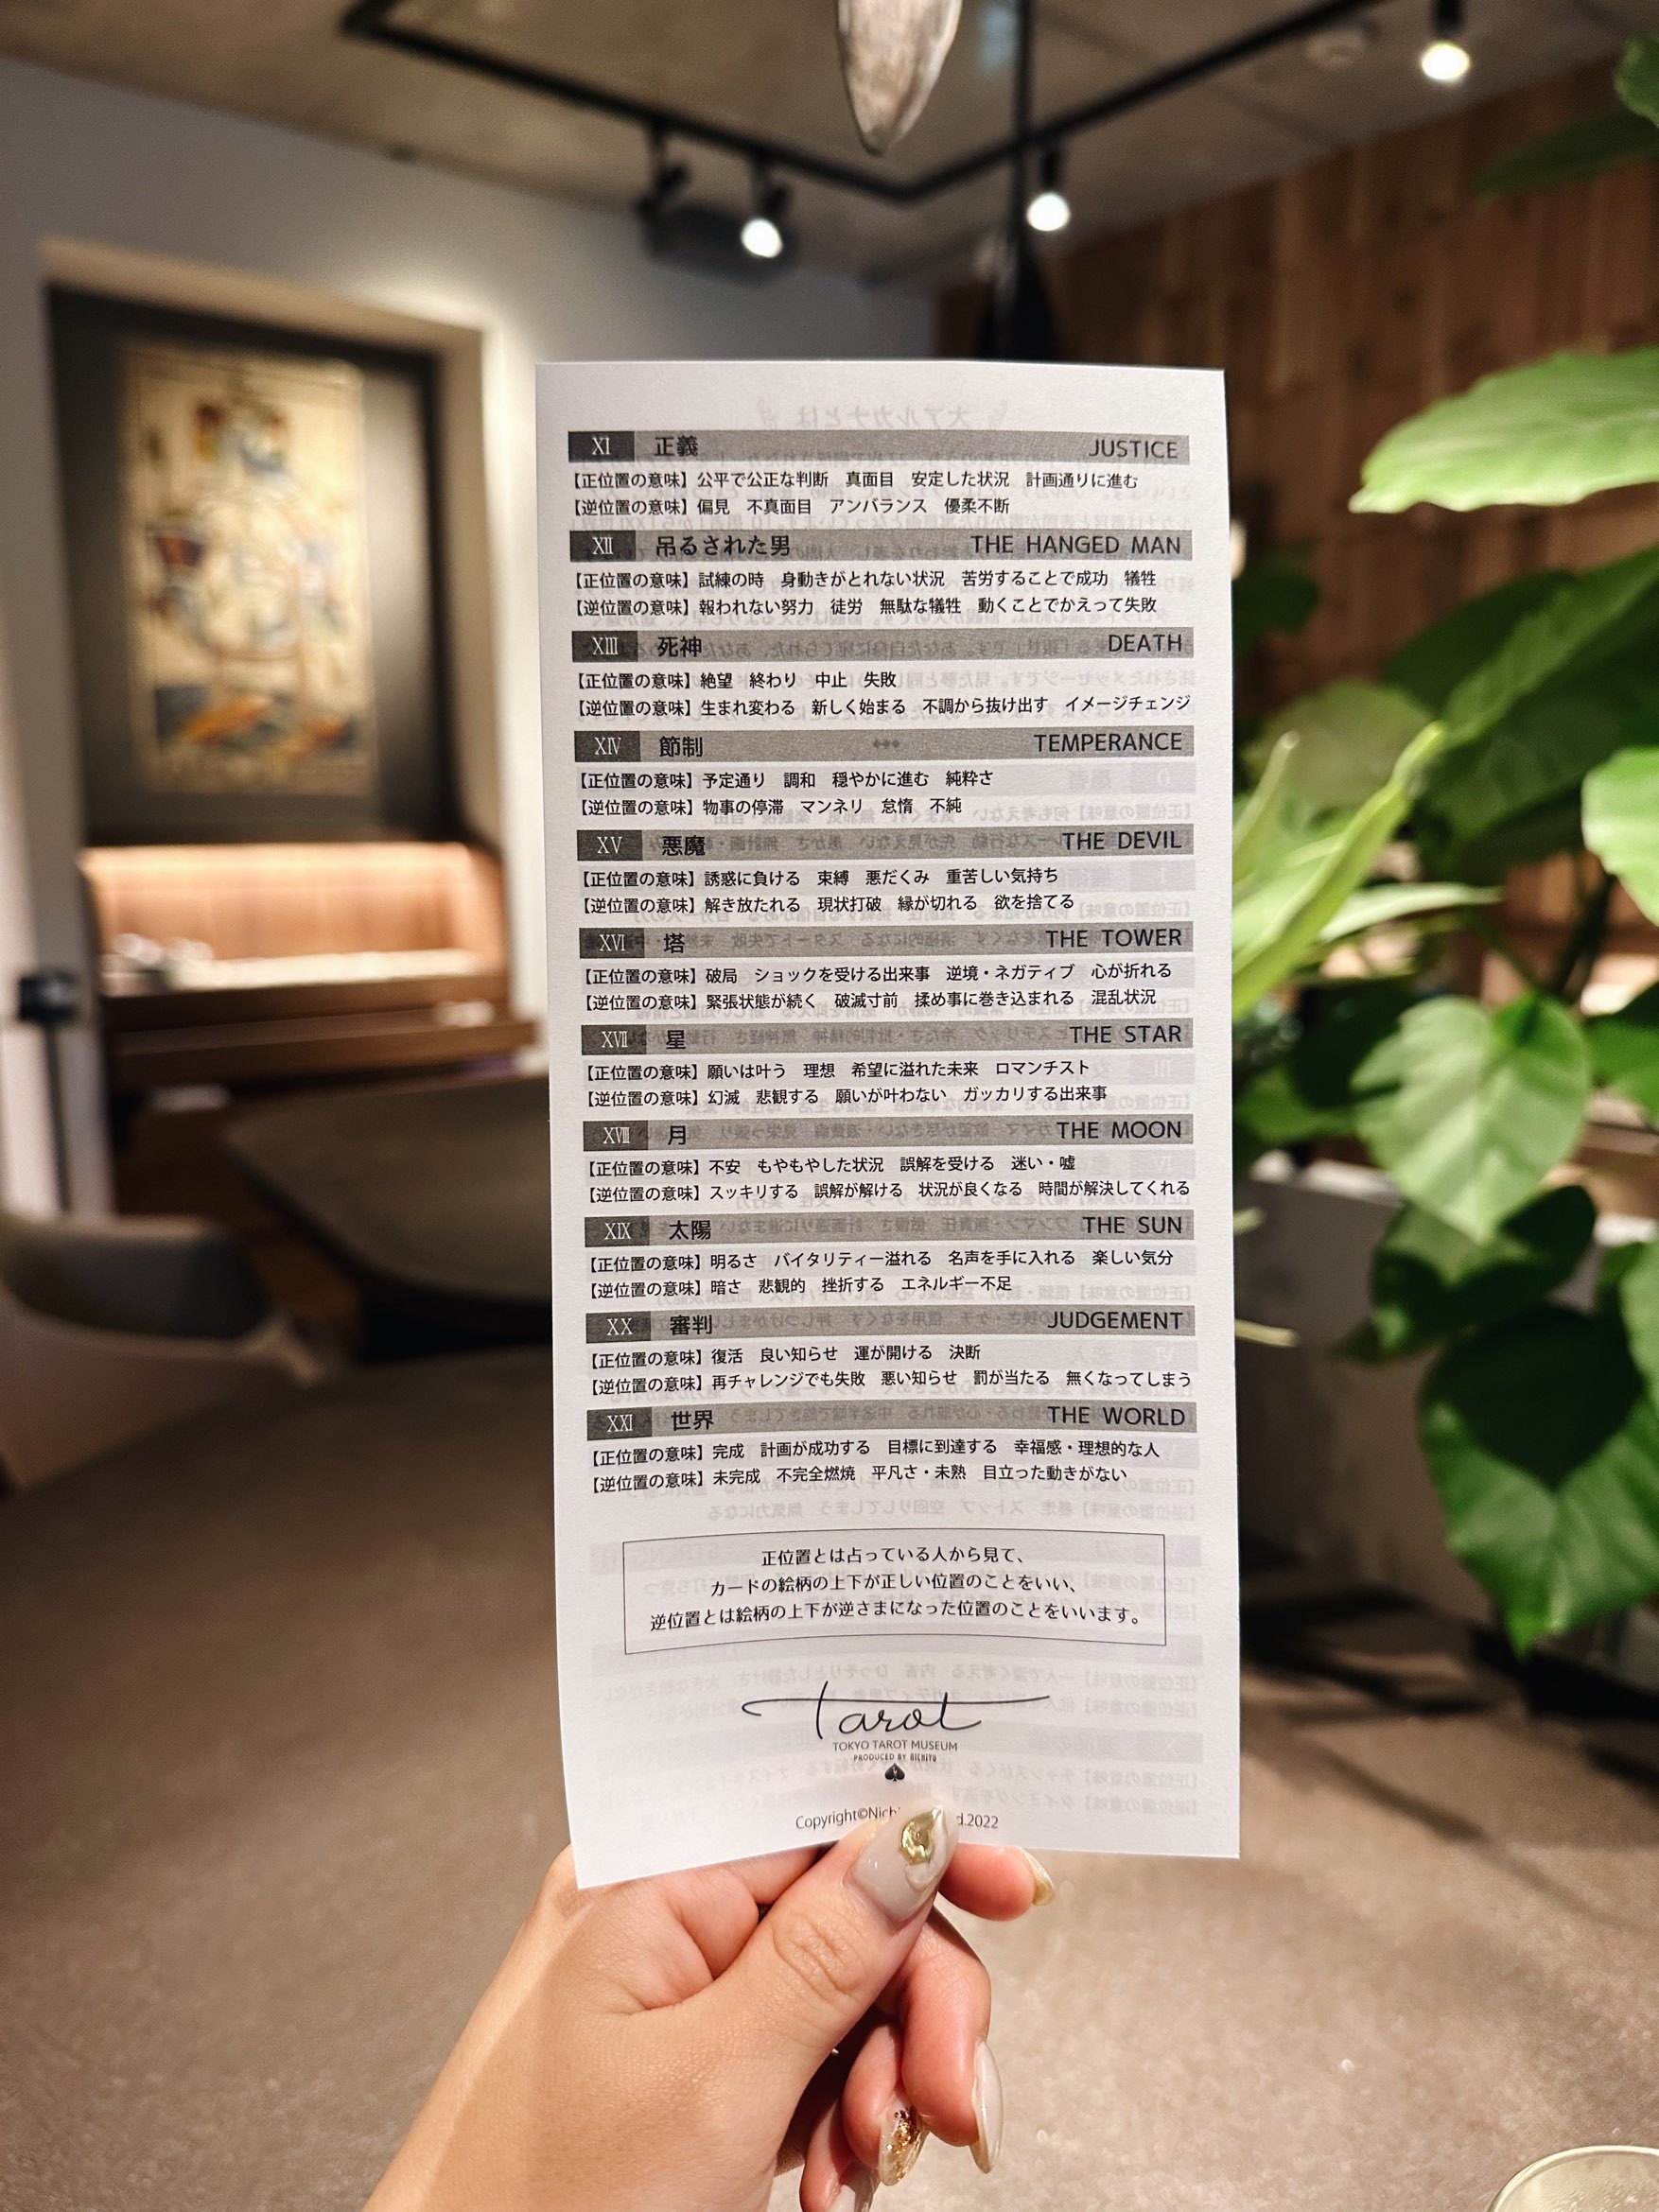 XI 正義 JUSTICE
【正位置の意味】公平で公正な判断　真面目　安定した状況　計画通りに進む
【逆位置の意味】偏見　不真面目　アンバランス　優柔不断
XII 吊るされた男 THE HANGED MAN
【正位置の意味】試練の時　身動きがとれない状況　苦労することで成功　犠牲
【逆位置の意味】報われない努力　徒労　無駄な犠牲　動くことでかえって失敗
XIII 死神 DEATH
【正位置の意味】絶望　終わり　中止　失敗
【逆位置の意味】生まれ変わる　新しく始まる　不調から抜け出す　イメージチェンジ
XIV 節制 TEMPERANCE
【正位置の意味】予定通り　調和　穏やかに進む　純粋さ
【逆位置の意味】物事の停滞　マンネリ　怠惰　不純
XV 悪魔 THE DEVIL
【正位置の意味】誘惑に負ける　束縛　悪だくみ　重苦しい気持ち
【逆位置の意味】解き放たれる　現状打破　縁が切れる　欲を捨てる
XVI 塔 THE TOWER
【正位置の意味】破局　ショックを受ける出来事　逆境・ネガティブ　心が折れる
【逆位置の意味】緊張状態が続く　破滅寸前　揉め事に巻き込まれる　混乱状況
XVII 星 THE STAR
【正位置の意味】願いは叶う　理想　希望に溢れた未来　ロマンチスト
【逆位置の意味】幻滅　悲観する　願いが叶わない　ガッカリする出来事
XVIII 月 THE MOON
【正位置の意味】不安　もやもやした状況　誤解を受ける　迷い・嘘
【逆位置の意味】スッキリする　誤解が解ける　状況が良くなる　時間が解決してくれる
XIX 太陽 THE SUN
【正位置の意味】明るさ　バイタリティー溢れる　名声を手に入れる　楽しい気分
【逆位置の意味】暗さ　悲観的　挫折する　エネルギー不足
XX 審判 JUDGEMENT
【正位置の意味】復活　良い知らせ　運が開ける　決断
【逆位置の意味】再チャレンジでも失敗　悪い知らせ　罰が当たる　無くなってしまう
XXI 世界 THE WORLD
【正位置の意味】完成　計画が成功する　目標に到達する　幸福感・理想的な人
【逆位置の意味】未完成　不完全燃焼　平凡さ・未熟　目立った動きがない
正位置とは占っている人から見て、
カードの絵柄の上下が正しい位置のことをいい、
逆位置とは絵柄の上下が逆さまになった位置のことをいいます。
Tarot
TOKYO TAROT MUSEUM
PRODUCED BY NICHIYU
Copyright© 2022